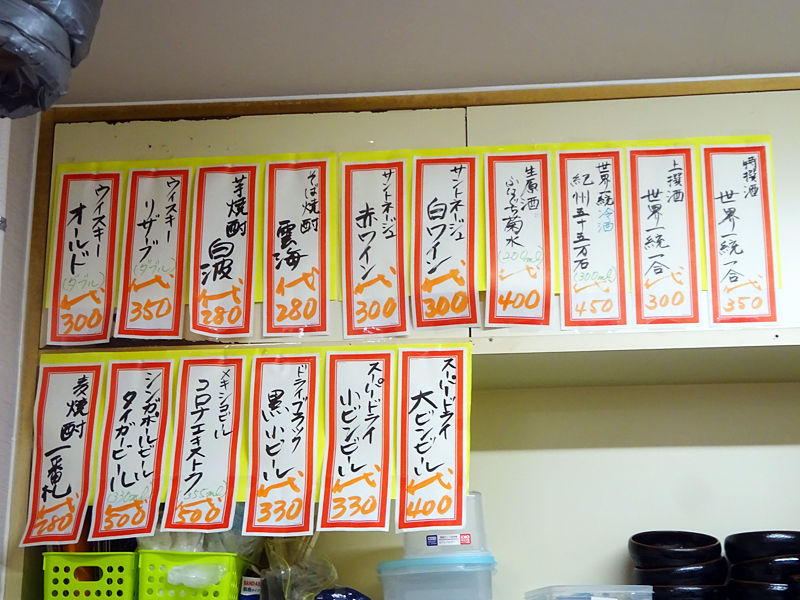 特撰酒
世界一統一合
代
350
上撰酒
世界一統一合
代
300
世界一統冷酒
紀州五十五万石
(300ml)
代
450
生原酒
ふなぐち菊水
(200ml)
代
400
サントネージュ
白ワイン
代
300
サントネージュ
赤ワイン
代
300
そば焼酎
雲海
代
280
芋焼酎
白波
代
280
ウイスキー
リザーブ
(ダブル)
代
350
ウイスキー
オールド
(ダブル)
代
300
スーパードライ
大ビンビール
代
400
スーパードライ
小ビンビール
代
330
ドライブラック
黒小ビール
代
330
メキシコビール
コロナエキストラ
(355ml)
代
500
シンガポールビール
タイガービール
(330ml)
代
500
麦焼酎
一番札
代
280